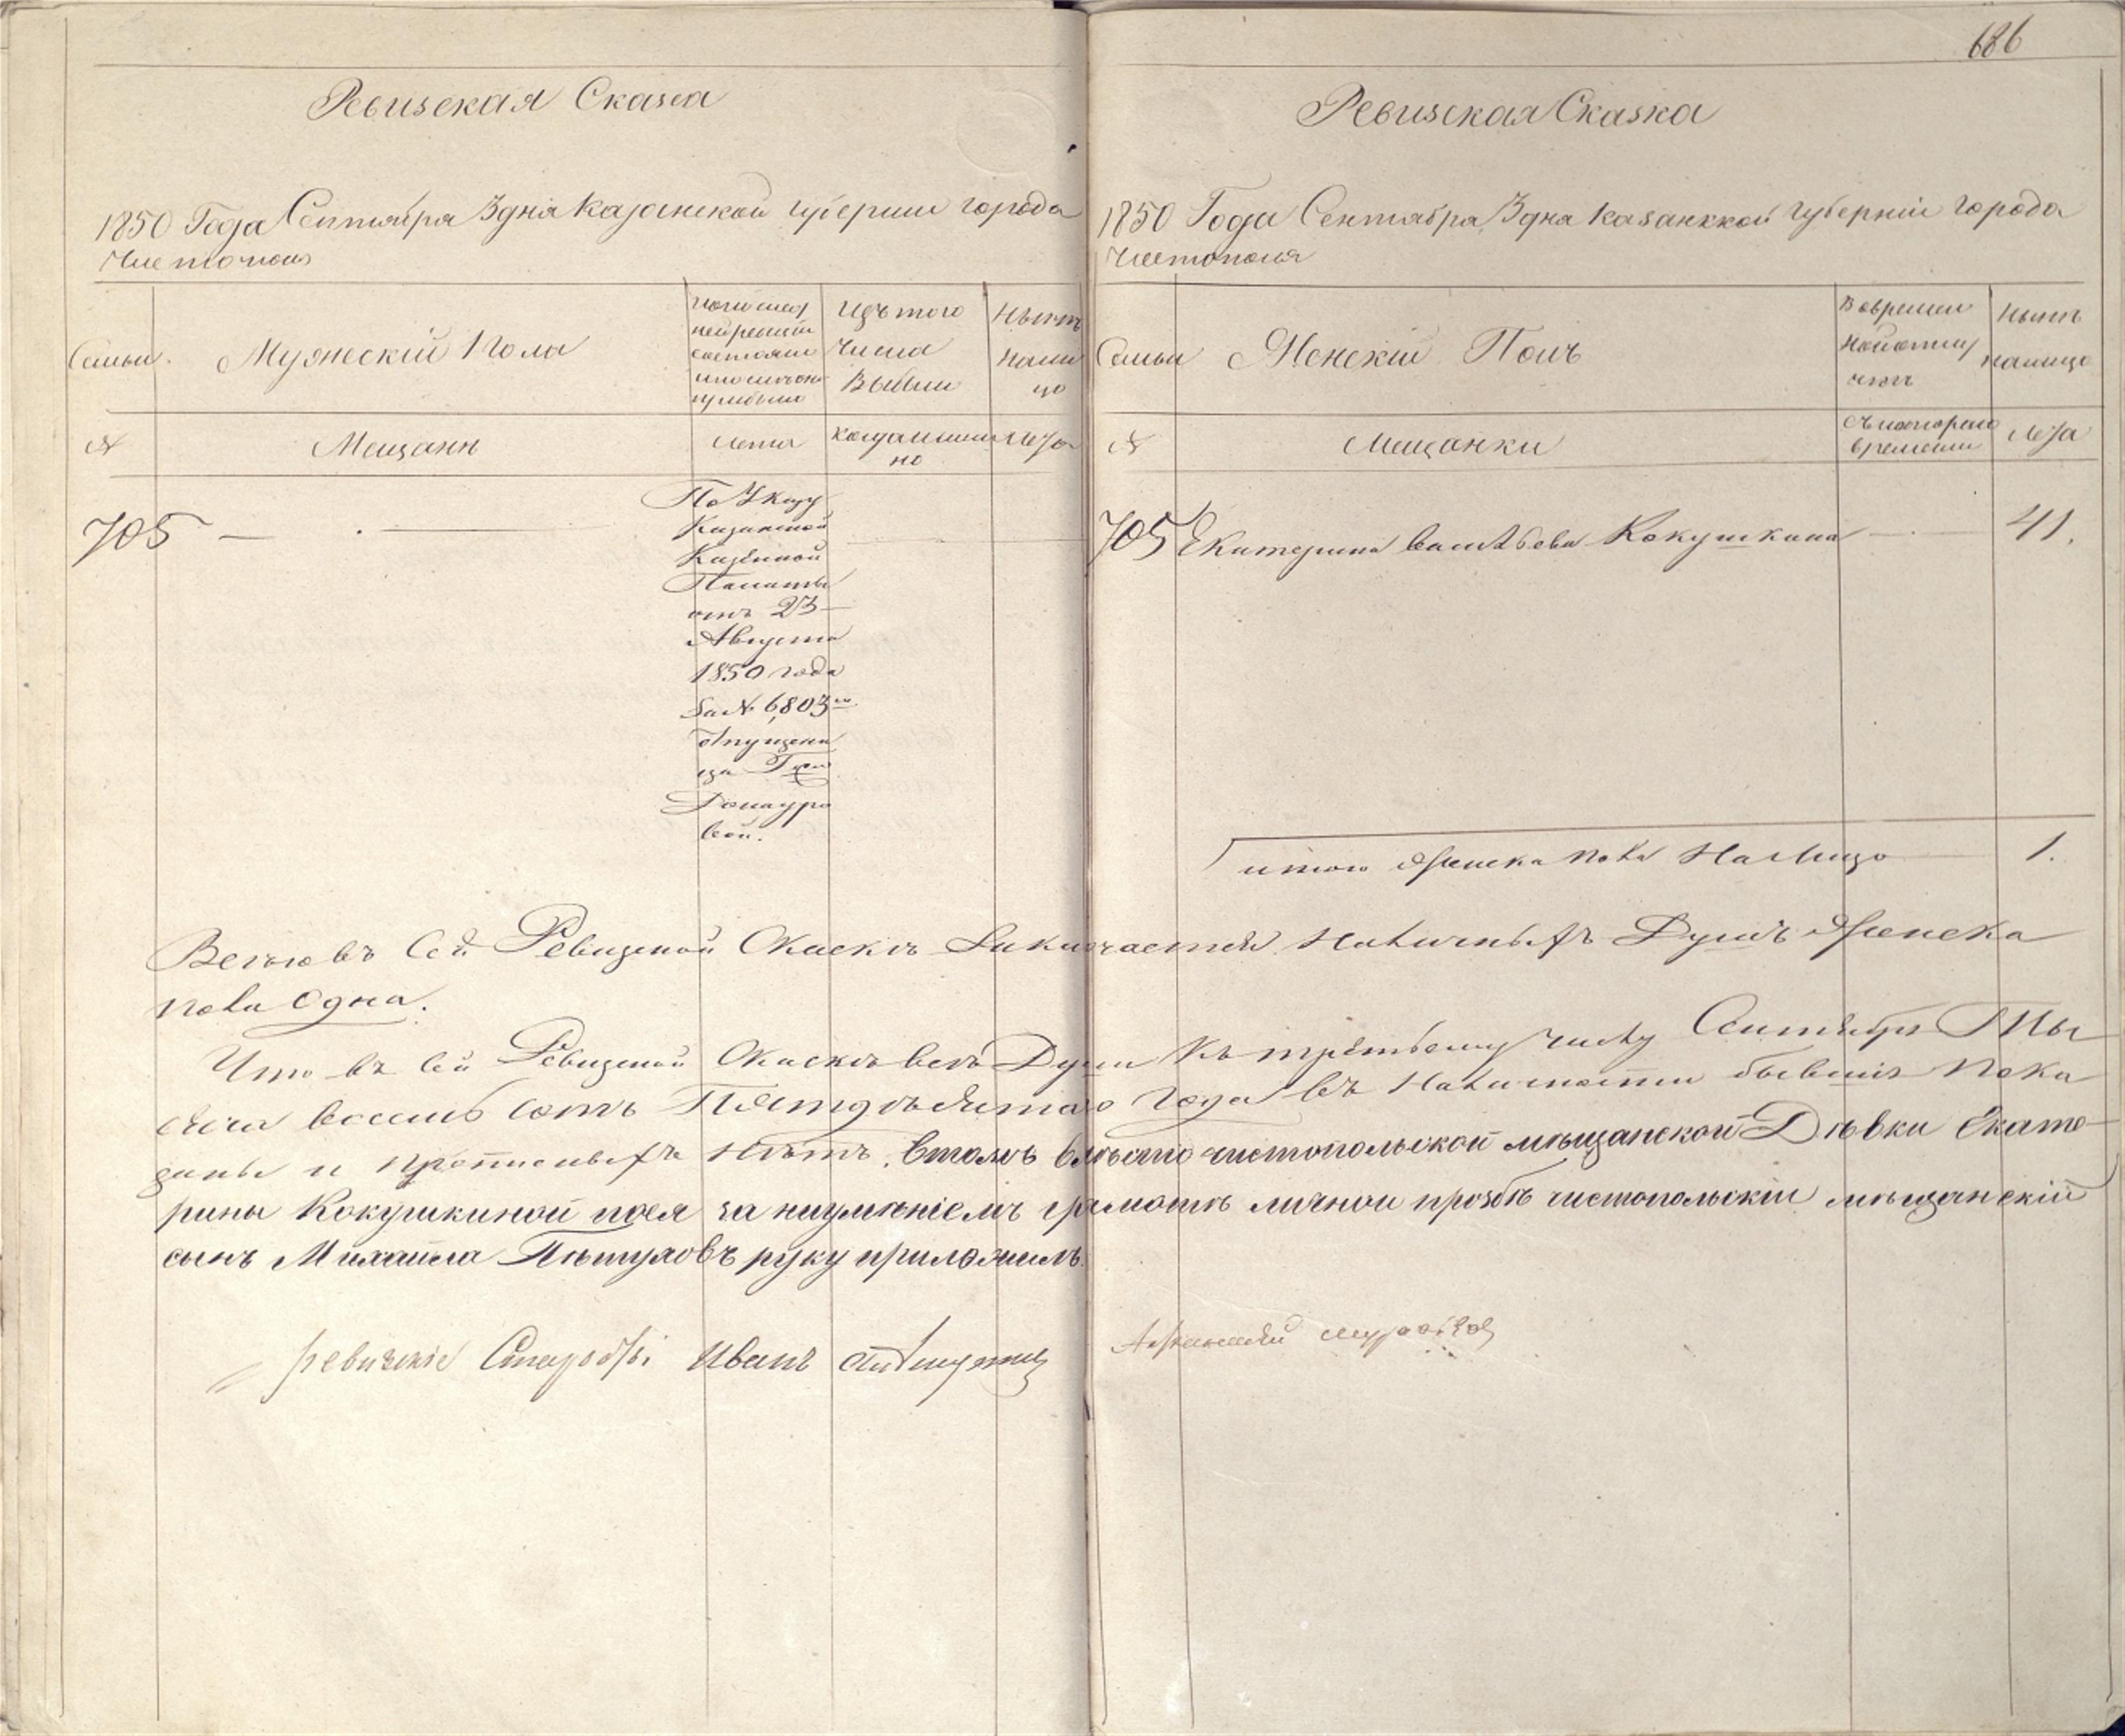 686
Ревизская Сказка
1850 Года Сентября 3 дня Казанской губернии города
Чистополя
Семьи
Мужеский Пола
Изъ того
числа
выбыли
Нынѣ
нали
цо
№
Мещанъ
лета
когда имян
но
лета
705
По Указу
Казанской
Казенной
Палаты
отъ 23
Августа
1850 года
за № 6,803м
отпущенни
ца Гжи
Домауро
вой.
Ревизская Сказка
1850 Года Сентября 3 дня Казанккой губерніи города
Чистополя
Семьи
Женскій Полъ
Вовремен
ной отлу
чкѣ
Нынѣ
налицо
№
Мещанки
Съ котораго
времени
лета
705 Екатерина Васильева Кокушкина 41.
итого Женска пола На Лицо 1.
Всего въ Сей Ревизской Скаскѣ Заключается Наличныхъ Душъ Женска
пола Одна.
Что въ Сей Ревизской Скаскѣ всѣ Души Къ третьему числу Сентября Ты
сяча восемь сотъ Пятдесятаго Года въ Наличности бывшія Пока
заны и прописныхъ Нѣтъ. Втомъ вмѣсто чистопольской мѣщанской Дѣвки Екате
рины Кокушкиной поея за неумѣніемъ грамотѣ личной прозбѣ чистопольскій мѣщанскій
сынъ Михайла Пѣтуховъ руку приложилъ
ревизскіе Старосты Иванъ